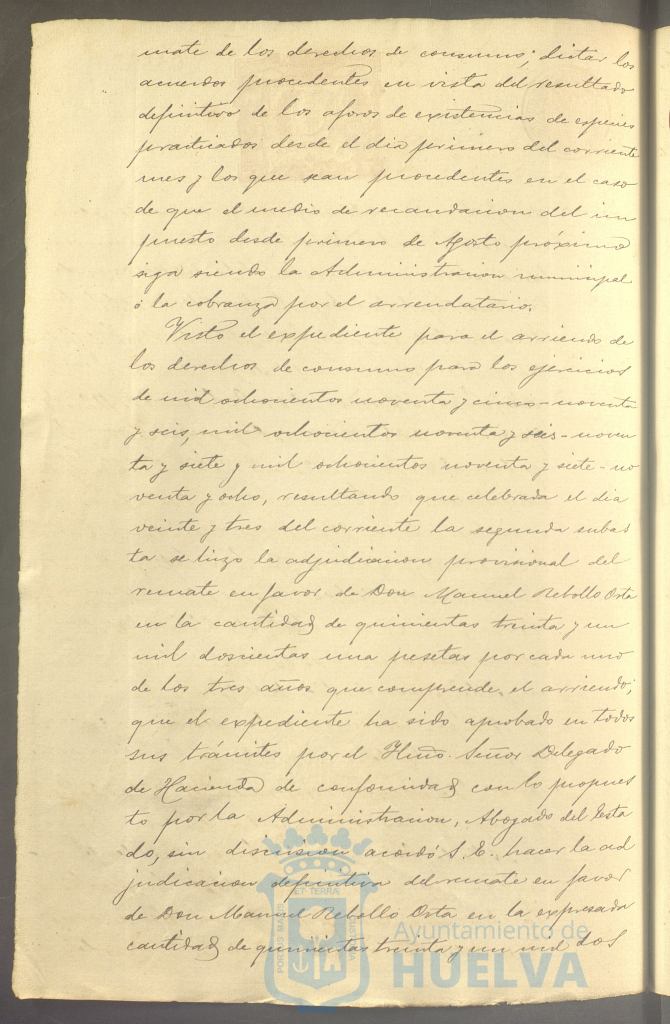 mate de los derechos de consumo; dictar los
acuerdos procedentes en vista del resultado
definitivo de los aforos de existencias de especies
practicados desde el dia primero del corriente
mes y los que sean procedentes en el caso
de que el medio de recaudacion del im
puesto desde primero de Agosto próximo
siga siendo la Administracion municipal
ó la cobranza por el arrendatario.
Visto el expediente para el arriendo de
los derechos de consumo para los ejercicios
de mil ochocientos noventa y cinco-noventa
y seis, mil ochocientos noventa y seis-noven
ta y siete y mil ochocientos noventa y siete-no
venta y ocho, resultando que celebrada el dia
veinte y tres del corriente la segunda subas
ta se hizo la adjudicacion provisional del
remate en favor de Don Manuel Rebollo Orta
en la cantidad de quinientas treinta y un
mil doscientas una pesetas por cada uno
de los tres años que comprende el arriendo;
que el expediente ha sido aprobado en todos
sus trámites por el Iltmo. Señor Delegado
de Hacienda de conformidad con lo propues
to por la Administracion, Abogado del Esta
do, sin discusion acordó S. E. hacer la ad
judicacion definitiva del remate en favor
de Don Manuel Rebollo Orta en la expresada
cantidad de quinientas treinta y un mil dos
Ayuntamiento de
HUELVA